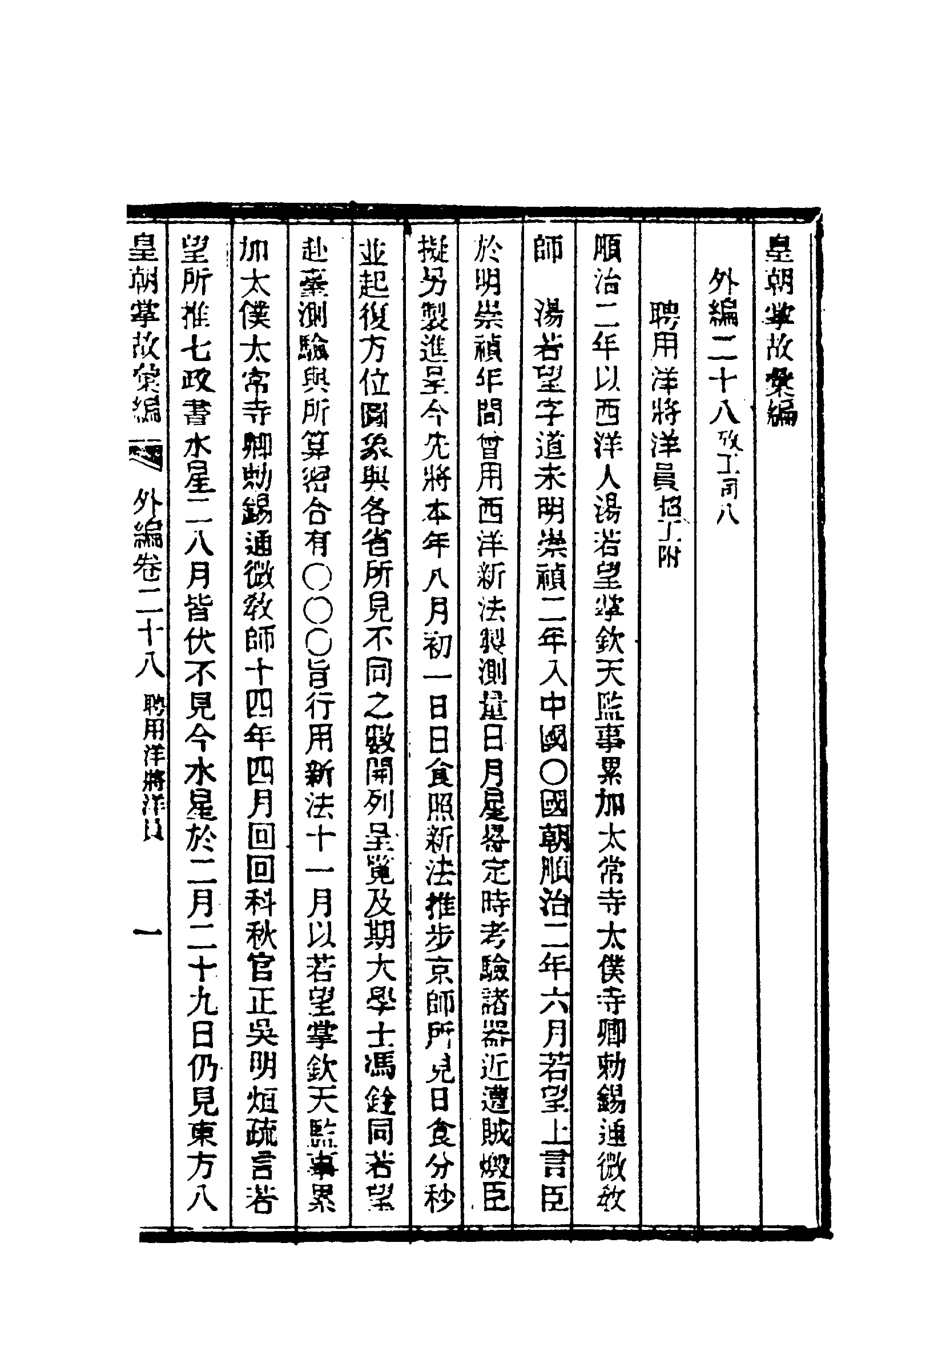 皇朝掌故彙編
外編二十八攷工司八
聘用洋將洋員招工附
順治二年以西洋人湯若望掌欽天監事累加太常寺太僕寺卿勅錫通微敎
師　湯若望字道未明崇禎二年入中國〇國朝順治二年六月若望上言臣
於明崇禎年間曾用西洋新法製測量日月星晷定時考驗諸器近遭賊燬臣
擬另製進呈今先將本年八月初一日日食照新法推步京師所見日食分秒
並起復方位圖象與各省所見不同之數開列呈覽及期大學士馮銓同若望
赴臺測驗與所算密合有〇〇〇旨行用新法十一月以若望掌欽天監事累
加太僕太常寺卿勅錫通微敎師十四年四月回回科秋官正吳明烜疏言若
望所推七政書水星二八月皆伏不見今水星於二月二十九日仍見東方八
皇朝掌故彙編　外編卷二十八　聘用洋將洋員　一